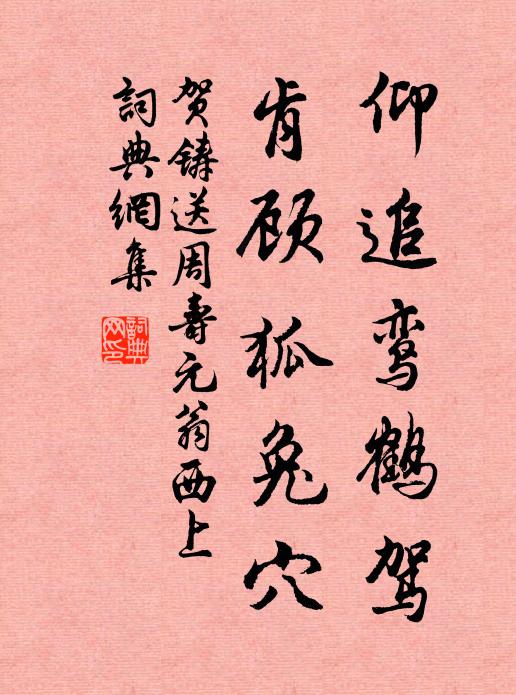 仰追鸾鹤驾
肯顾狐兔穴
贺铸送周壽元翁西上
詞典網集
詞典网印